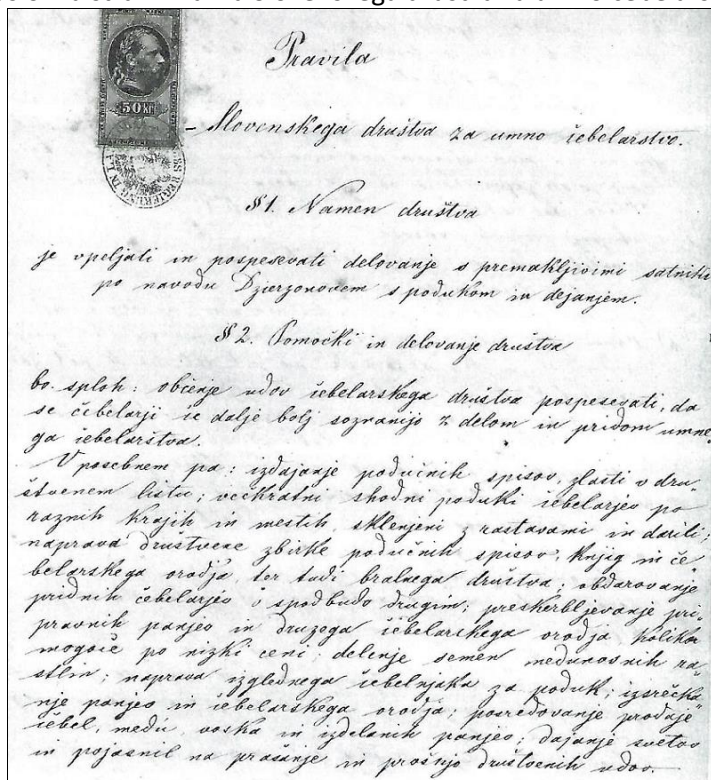 50 Kr
Pravila
Slovenskega društva za umno čebelarstvo.
§1. Namen društva
je vpeljati in pospeševati delovanje s premakljivimi satniki
po navodu Dzierzonovem s podukom in dejanjem.
§2. Pomočki in delovanje društva
bo. sploh: občenje udov čebelarskega društva pospeševati, da
se čebelarji še dalje bolj soznanijo z delom in pridom umne-
ga čebelarstva.
V posebnem pa: izdajanje podučnih spisov, zlasti v dru-
štvenem listu; večkratni shodni poduki čebelarjev po
raznih krajih in mestih, sklenjeni z rastavami in darili;
naprava društvene zbirke podučnih spisov, knjig in če-
belarskega orodja, ter tudi bralnega društva; obdarovanje
pridnih čebelarjev v spodbudo drugim; preskerbljevanje pri-
pravnih panjev in druzega čebelarskega orodja kolikor
mogoče po nizki ceni; delenje semen medunosnih ra-
stlin; naprava izglednega čebelnjaka za poduk; izsrečka-
nje panjev in čebelarskega orodja; posredovanje prodaje
čebel, medu, voska in izdelanih panjev; dajanje svetov
in pojasnil na prašanje in prošnjo društvenih udov